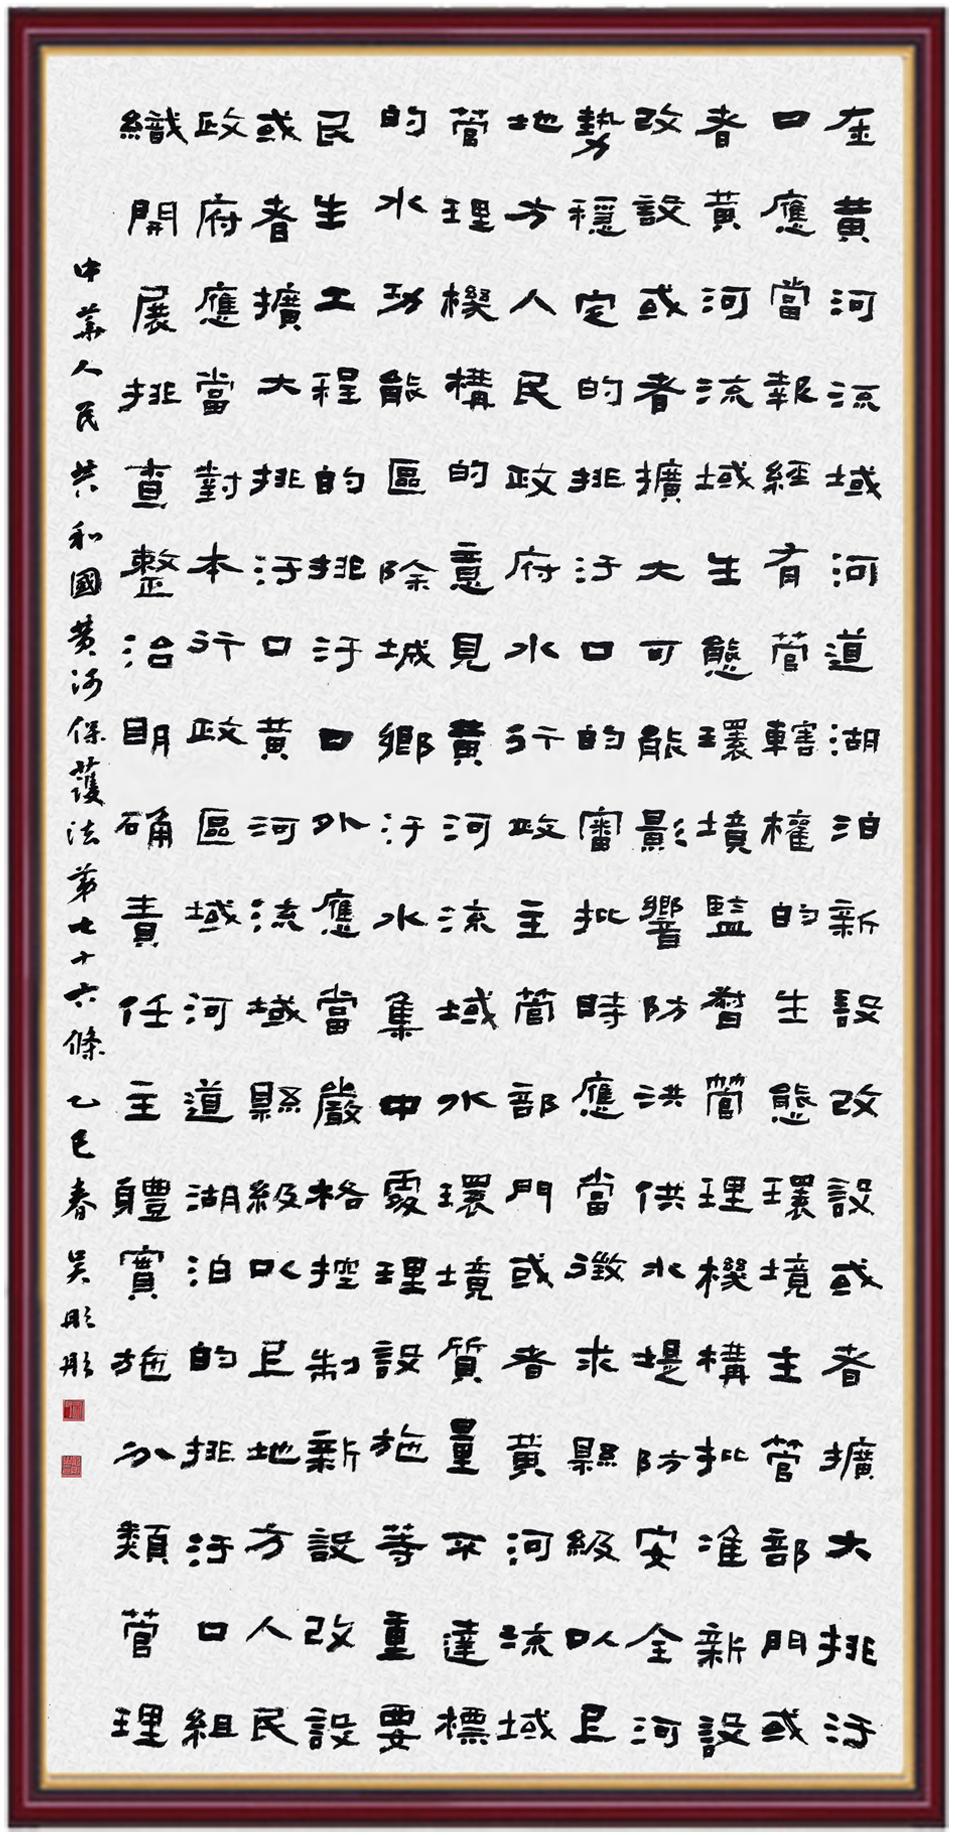 在黃河流域河道湖泊新設改設或者擴大排汙
口應當報經有管轄權的生態環境主管部門或
者黃河流域生態環境監督管理機構批准新設
改設或者擴大可能影響防洪供水堤防安全河
勢穩定的排汙口的審批時應當徵求縣級以上
地方人民政府水行政主管部門或者黃河流域
管理機構的意見黃河流域水環境質量不達標
的水功能區除城鄉汙水集中處理設施等重要
民生工程的排汙口外應當嚴格控制新設改設
或者擴大排汙口黃河流域縣級以上地方人民
政府應當對本行政區域河道湖泊的排汙口組
織開展排查整治明確責任主體實施分類管理
中華人民共和國黃河保護法第七十六條乙巳春吳彤彤